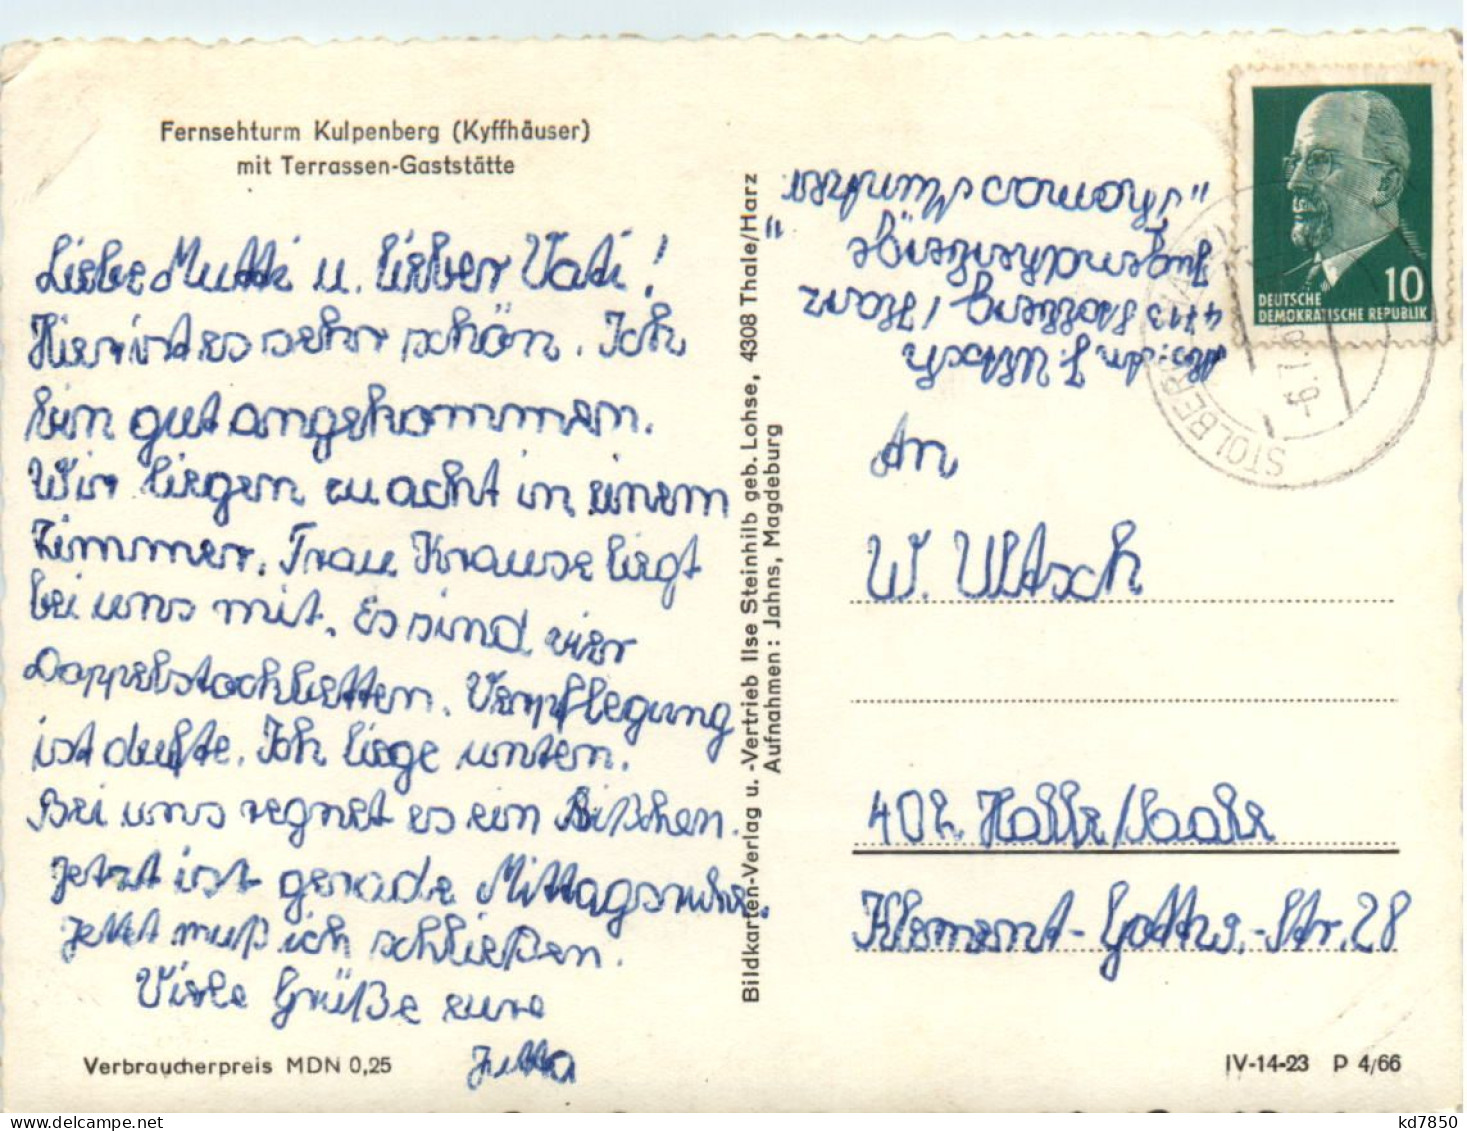 Fernsehturm Kulpenberg (Kyffhäuser)
mit Terrassen-Gaststätte
Liebe Mutti u. lieber Vati!
Hier ist es sehr schön. Ich
bin gut angekommen.
Wir liegen zu acht in einem
Zimmer. Frau Krause liegt
bei uns mit. Es sind vier
Doppelstockbetten. Verpflegung
ist dufte. Ich liege unten.
Bei uns regnet es ein Bißchen.
Jetzt ist gerade Mittagsruhe.
Jetzt muß ich schließen.
Viele Grüße eure
Jutta
Verbraucherpreis MDN 0,25
Bildkarten-Verlag u. -Vertrieb Ilse Steinhilb geb. Lohse, 4308 Thale/Harz
Aufnahmen: Jahns, Magdeburg
J. Ultsch
4713 Stolberg / Harz
Jugendherberge
"Thomas Müntzer"
10
DEUTSCHE
DEMOKRATISCHE REPUBLIK
STOLBERG (HARZ)
An
W. Ultsch
402 Halle/Saale
Klement-Gottw.-Str. 28
IV-14-23 P 4/66
delcampe.net
kd7850